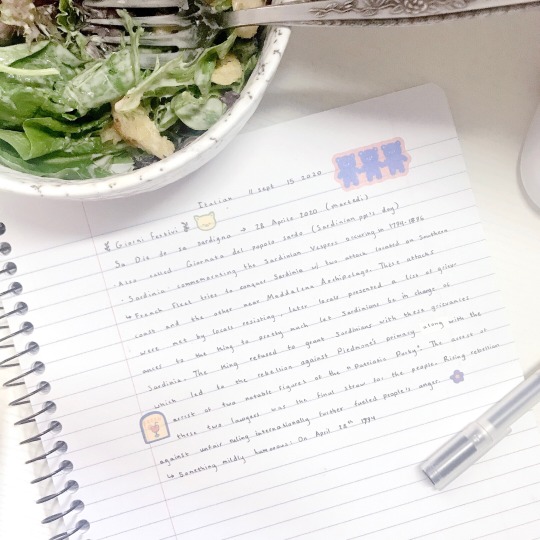 Italian // sept 15 2020
Giorni Festivi
Sa Die de sa sardigna → 28 Aprile 2020 (martedì)
· Also called Giornata del popolo sardo (Sardinian ppl's day)
· Sardinia: commemorating the Sardinian Vespers occuring in 1794-1796
↳ French fleet tries to conquer Sardinia w/ two attack located on Southern
coast and the other near Maddalena Archipelago. These attacks
were met by locals resisting, later locals presented a list of griev-
ances to the king to pretty much let Sardinians be in charge of
Sardinia. The king refused to grant Sardinians with these grievances
which led to the rebellion against Piedmont's primacy along with the
arrest of two notable figures of the "Patriotic Party". The arrest of
these two lawyers was the final straw for the people. Rising rebellion
against unfair ruling internationally further fueled people's anger.
↳ Something mildly humorous: On April 28th 1794